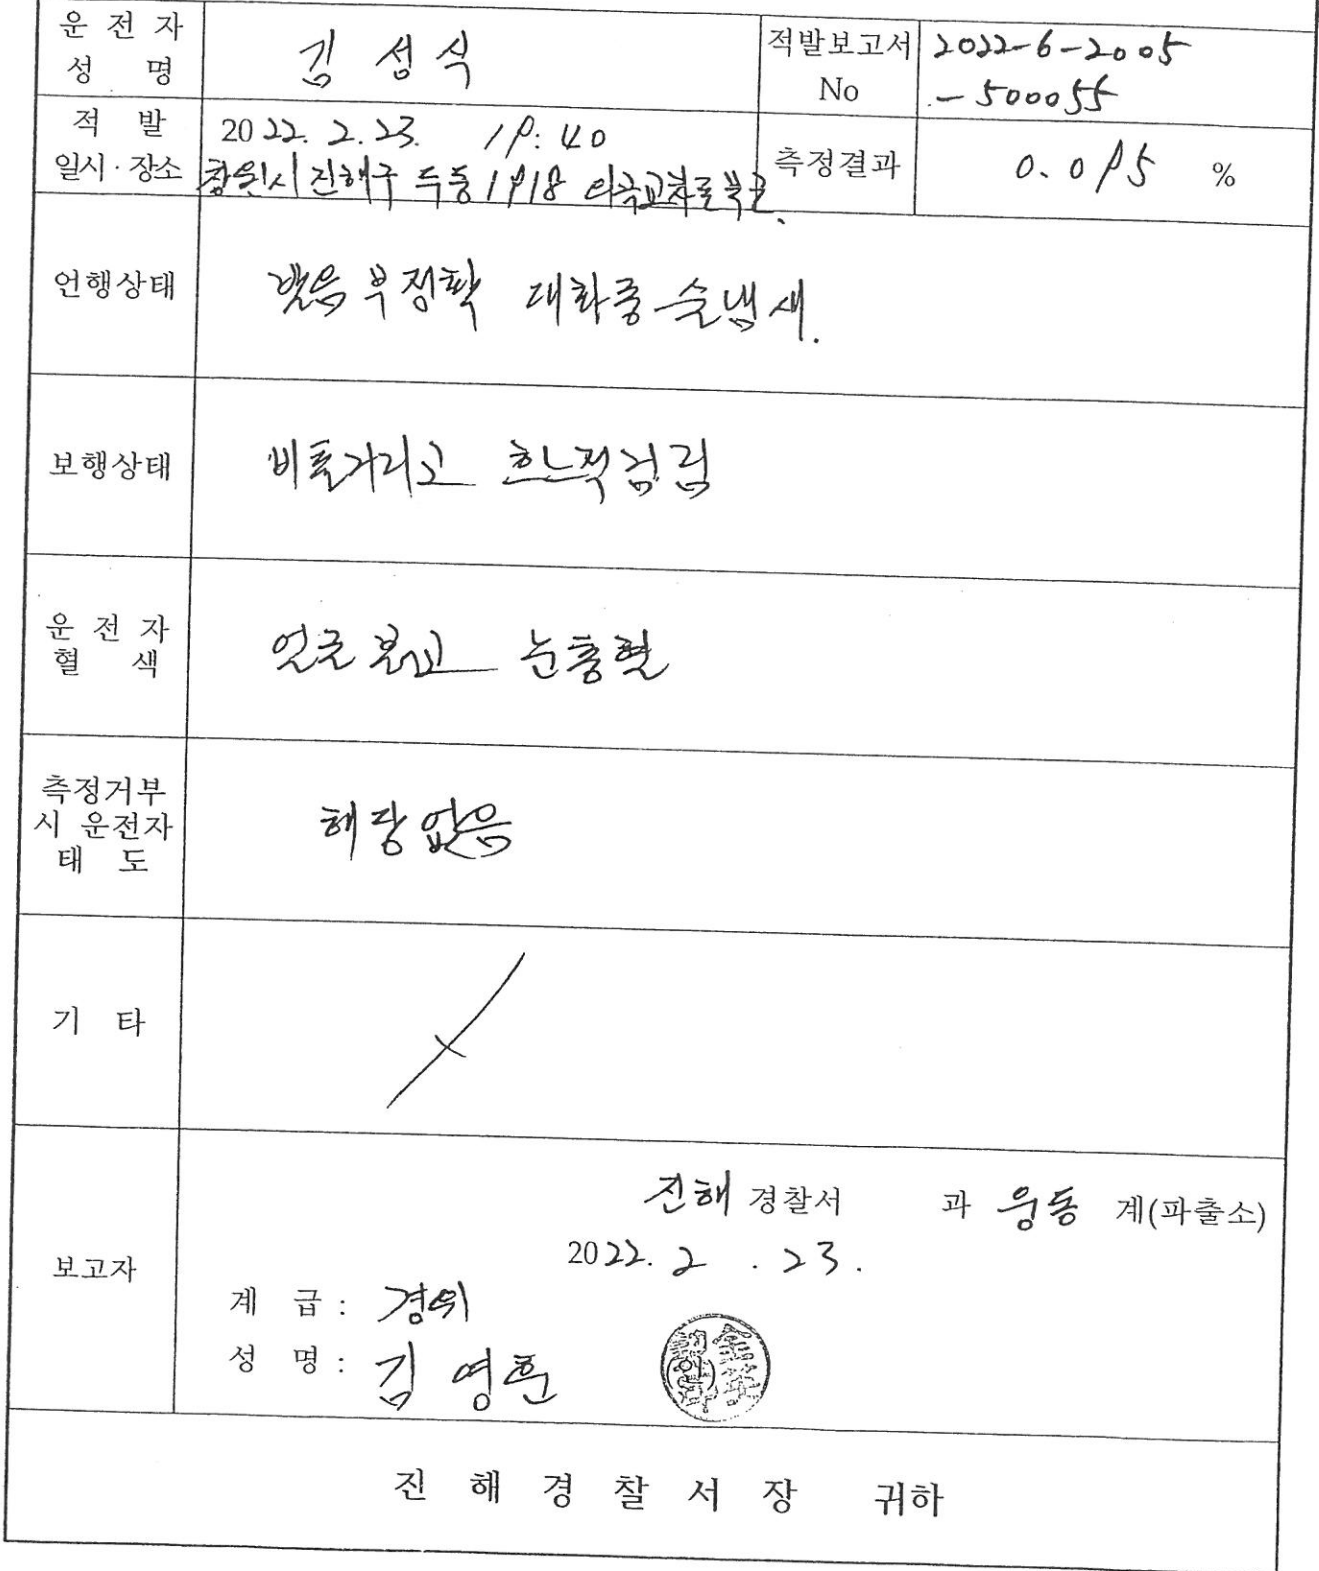 운 전 자
성 명
김 성 식
적발보고서
No
2022-6-2005
-500055
적 발
일시 · 장소
2022. 2. 23. 19:40
창원시 진해구 두동 1918 의곡교차로부근.
측정결과
0.095 %
언행상태
발음 부정확 대화중 술냄새.
보행상태
비틀거리고 흐느적거림
운 전 자
혈 색
얼굴 붉고 눈충혈
측정거부
시 운전자
태 도
해당없음
기 타
보고자
진해 경찰서 과 웅동 계(파출소)
2022. 2 . 23.
계 급 : 경위
성 명 : 김 영훈
(인)
진 해 경 찰 서 장 귀하